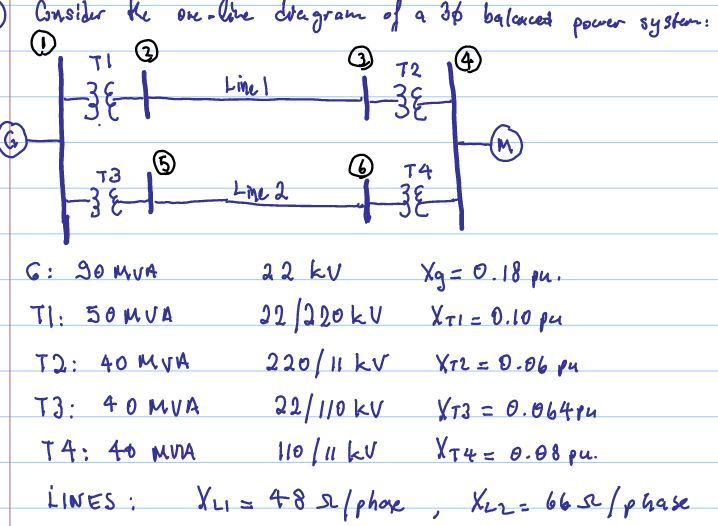 Consider the one-line diagram of a 3φ balanced power system:
① ② ③ ④
T1 T2
Line 1
G M
⑤ ⑥
T3 T4
Line 2
G: 90 MVA 22 kV Xg = 0.18 pu.
T1: 50 MVA 22/220 kV XT1 = 0.10 pu
T2: 40 MVA 220/11 kV XT2 = 0.06 pu
T3: 40 MVA 22/110 kV XT3 = 0.064 pu
T4: 40 MVA 110/11 kV XT4 = 0.08 pu.
LINES: XL1 = 48 Ω/phase, XL2 = 66 Ω/phase